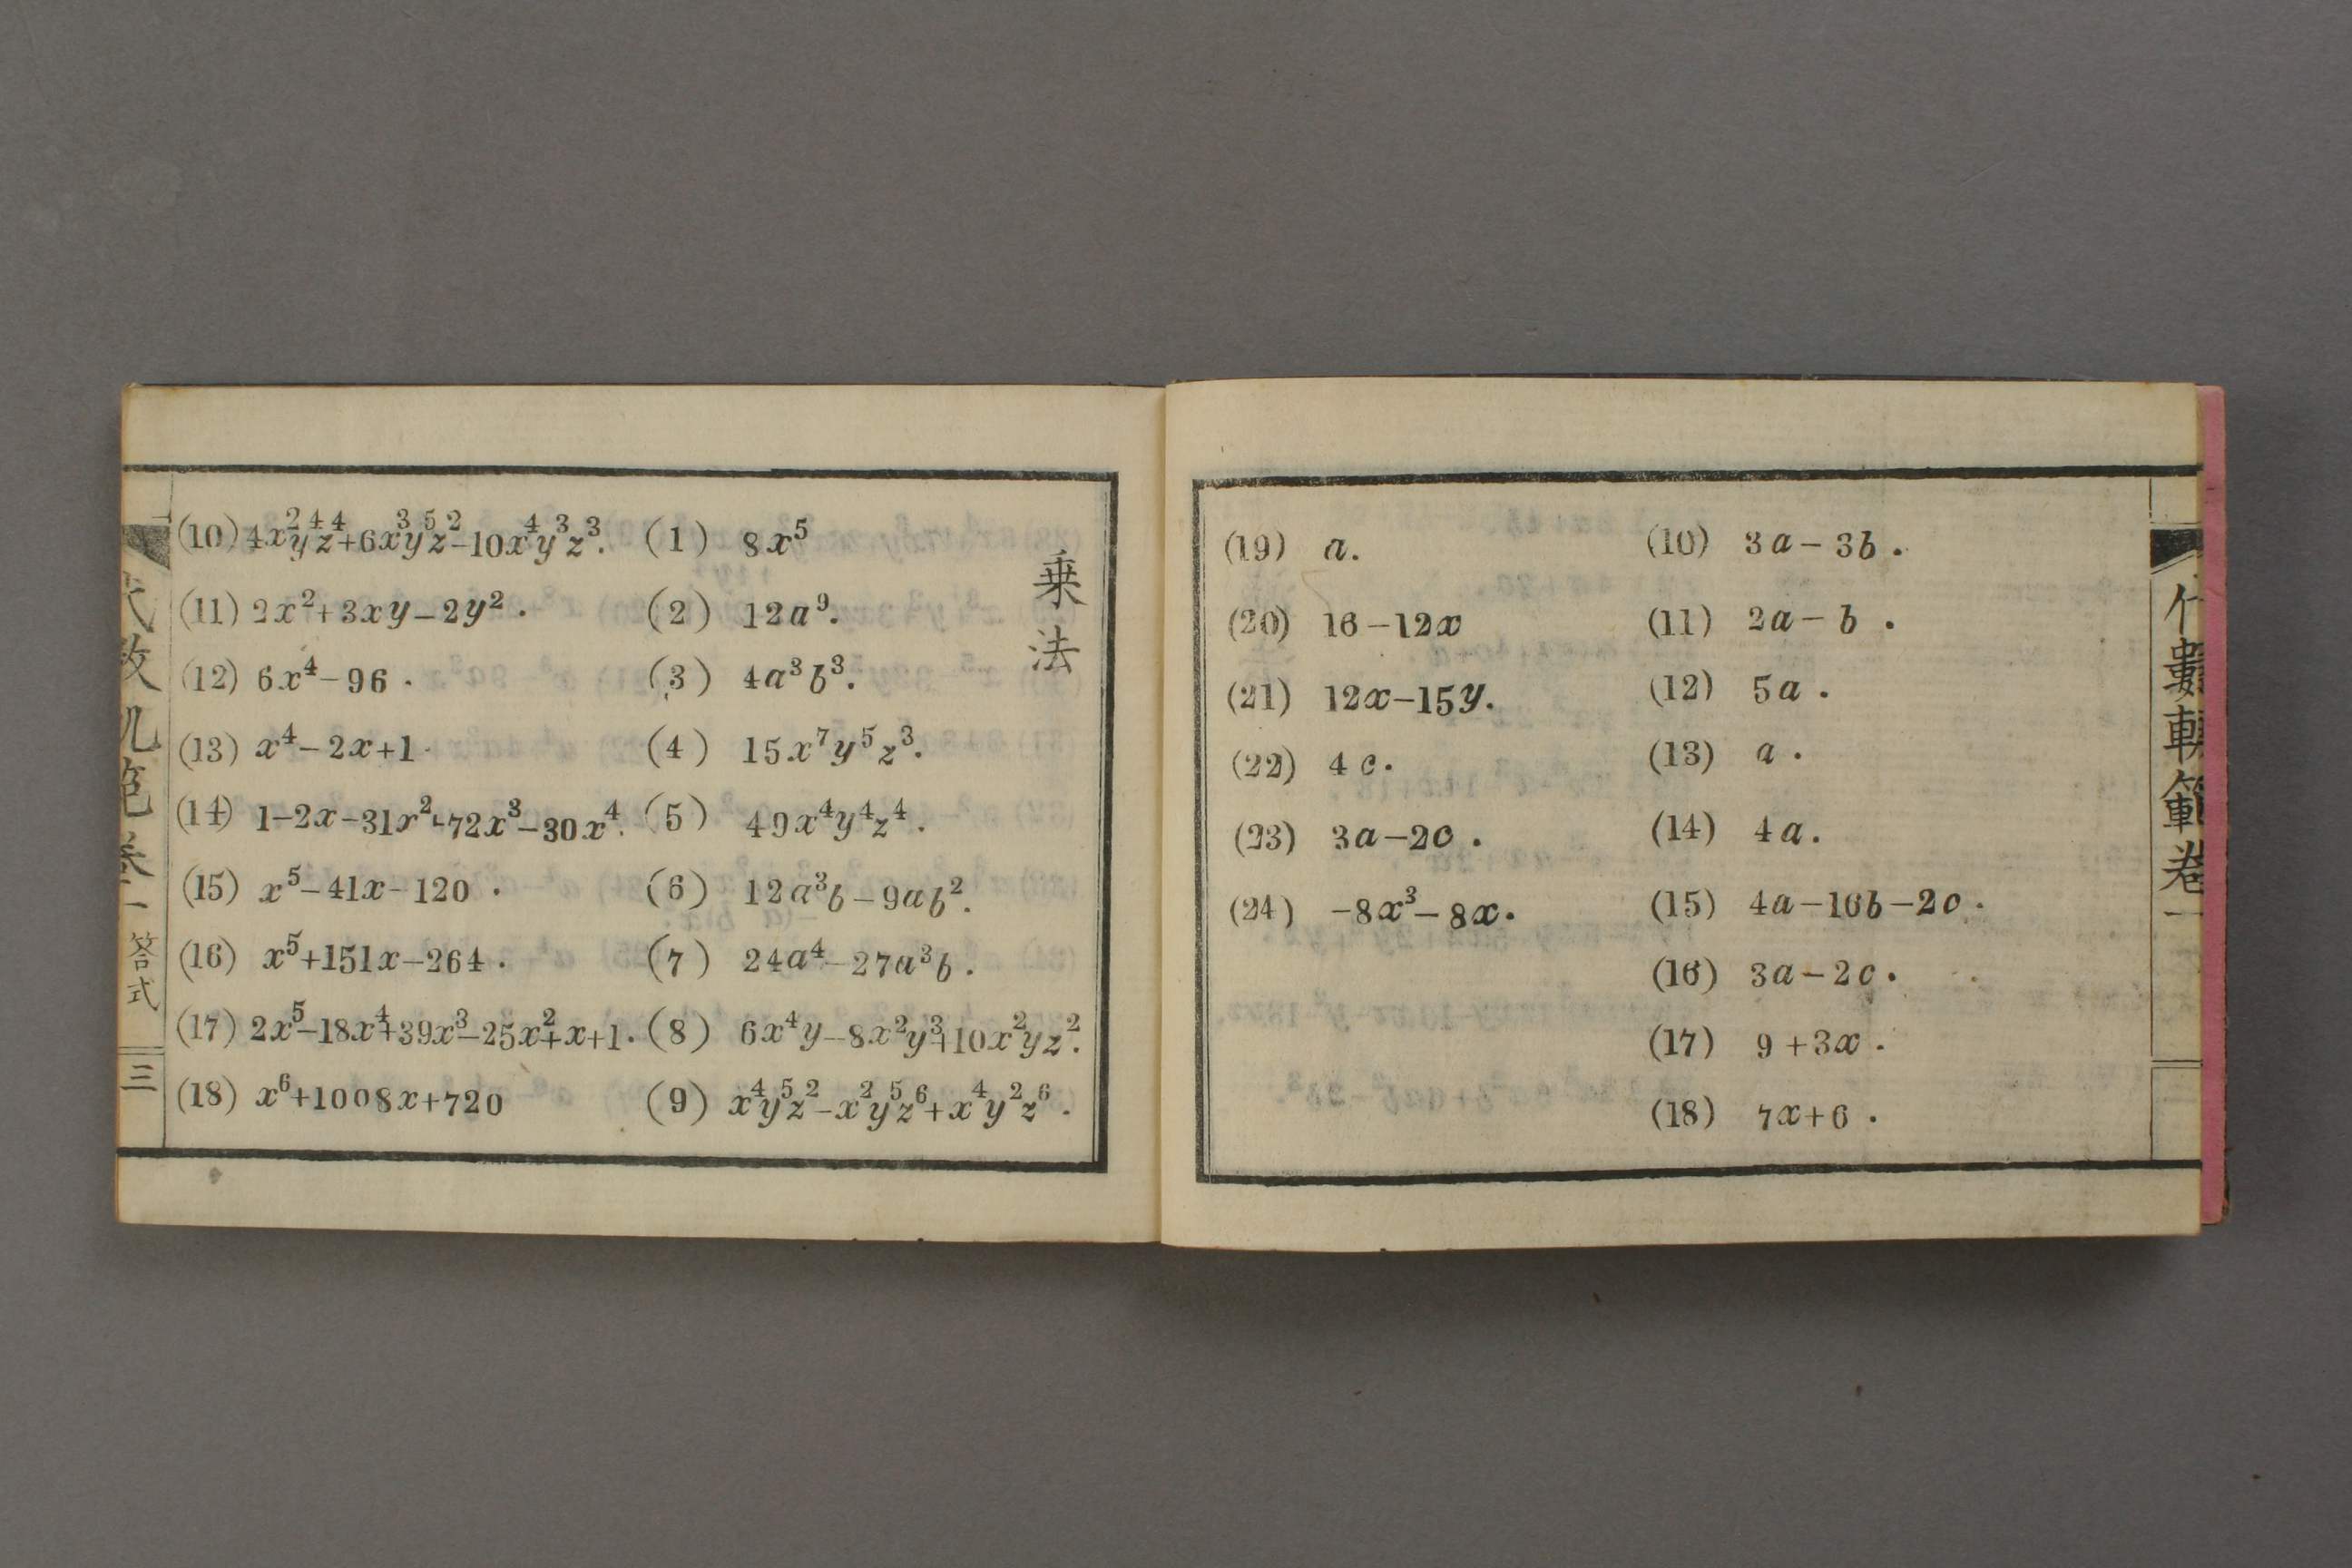 代數軌範卷一
(10) 3a-3b.
(11) 2a-b.
(12) 5a.
(13) a.
(14) 4a.
(15) 4a-16b-2c.
(16) 3a-2c.
(17) 9+3x.
(18) 7x+6.
(19) a.
(20) 16-12x
(21) 12x-15y.
(22) 4c.
(23) 3a-2c.
(24) -8x³-8x.
乗法
(1) 8x⁵
(2) 12a⁹.
(3) 4a³b³.
(4) 15x⁷y⁵z³.
(5) 49x⁴y⁴z⁴.
(6) 12a³b-9ab².
(7) 24a⁴-27a³b.
(8) 6x⁴y-8x²y³+10x²yz².
(9) x⁴y⁵z²-x²y⁵z⁶+x⁴y²z⁶.
(10) 4x²y⁴z⁴+6x³y⁵z²-10x⁴y³z³.
(11) 2x²+3xy-2y².
(12) 6x⁴-96.
(13) x⁴-2x+1.
(14) 1-2x-31x²-72x³-30x⁴.
(15) x⁵-41x-120.
(16) x⁵+151x-264.
(17) 2x⁵-18x⁴+39x³-25x²+x+1.
(18) x⁶+1008x+720
卷一 答式
三